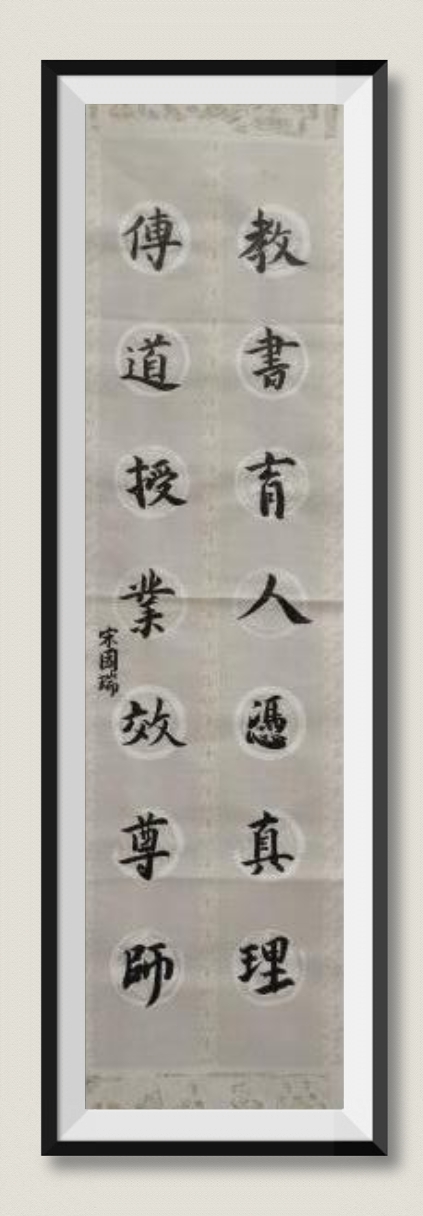 教書育人憑真理
傳道授業效尊師
宋國瑞